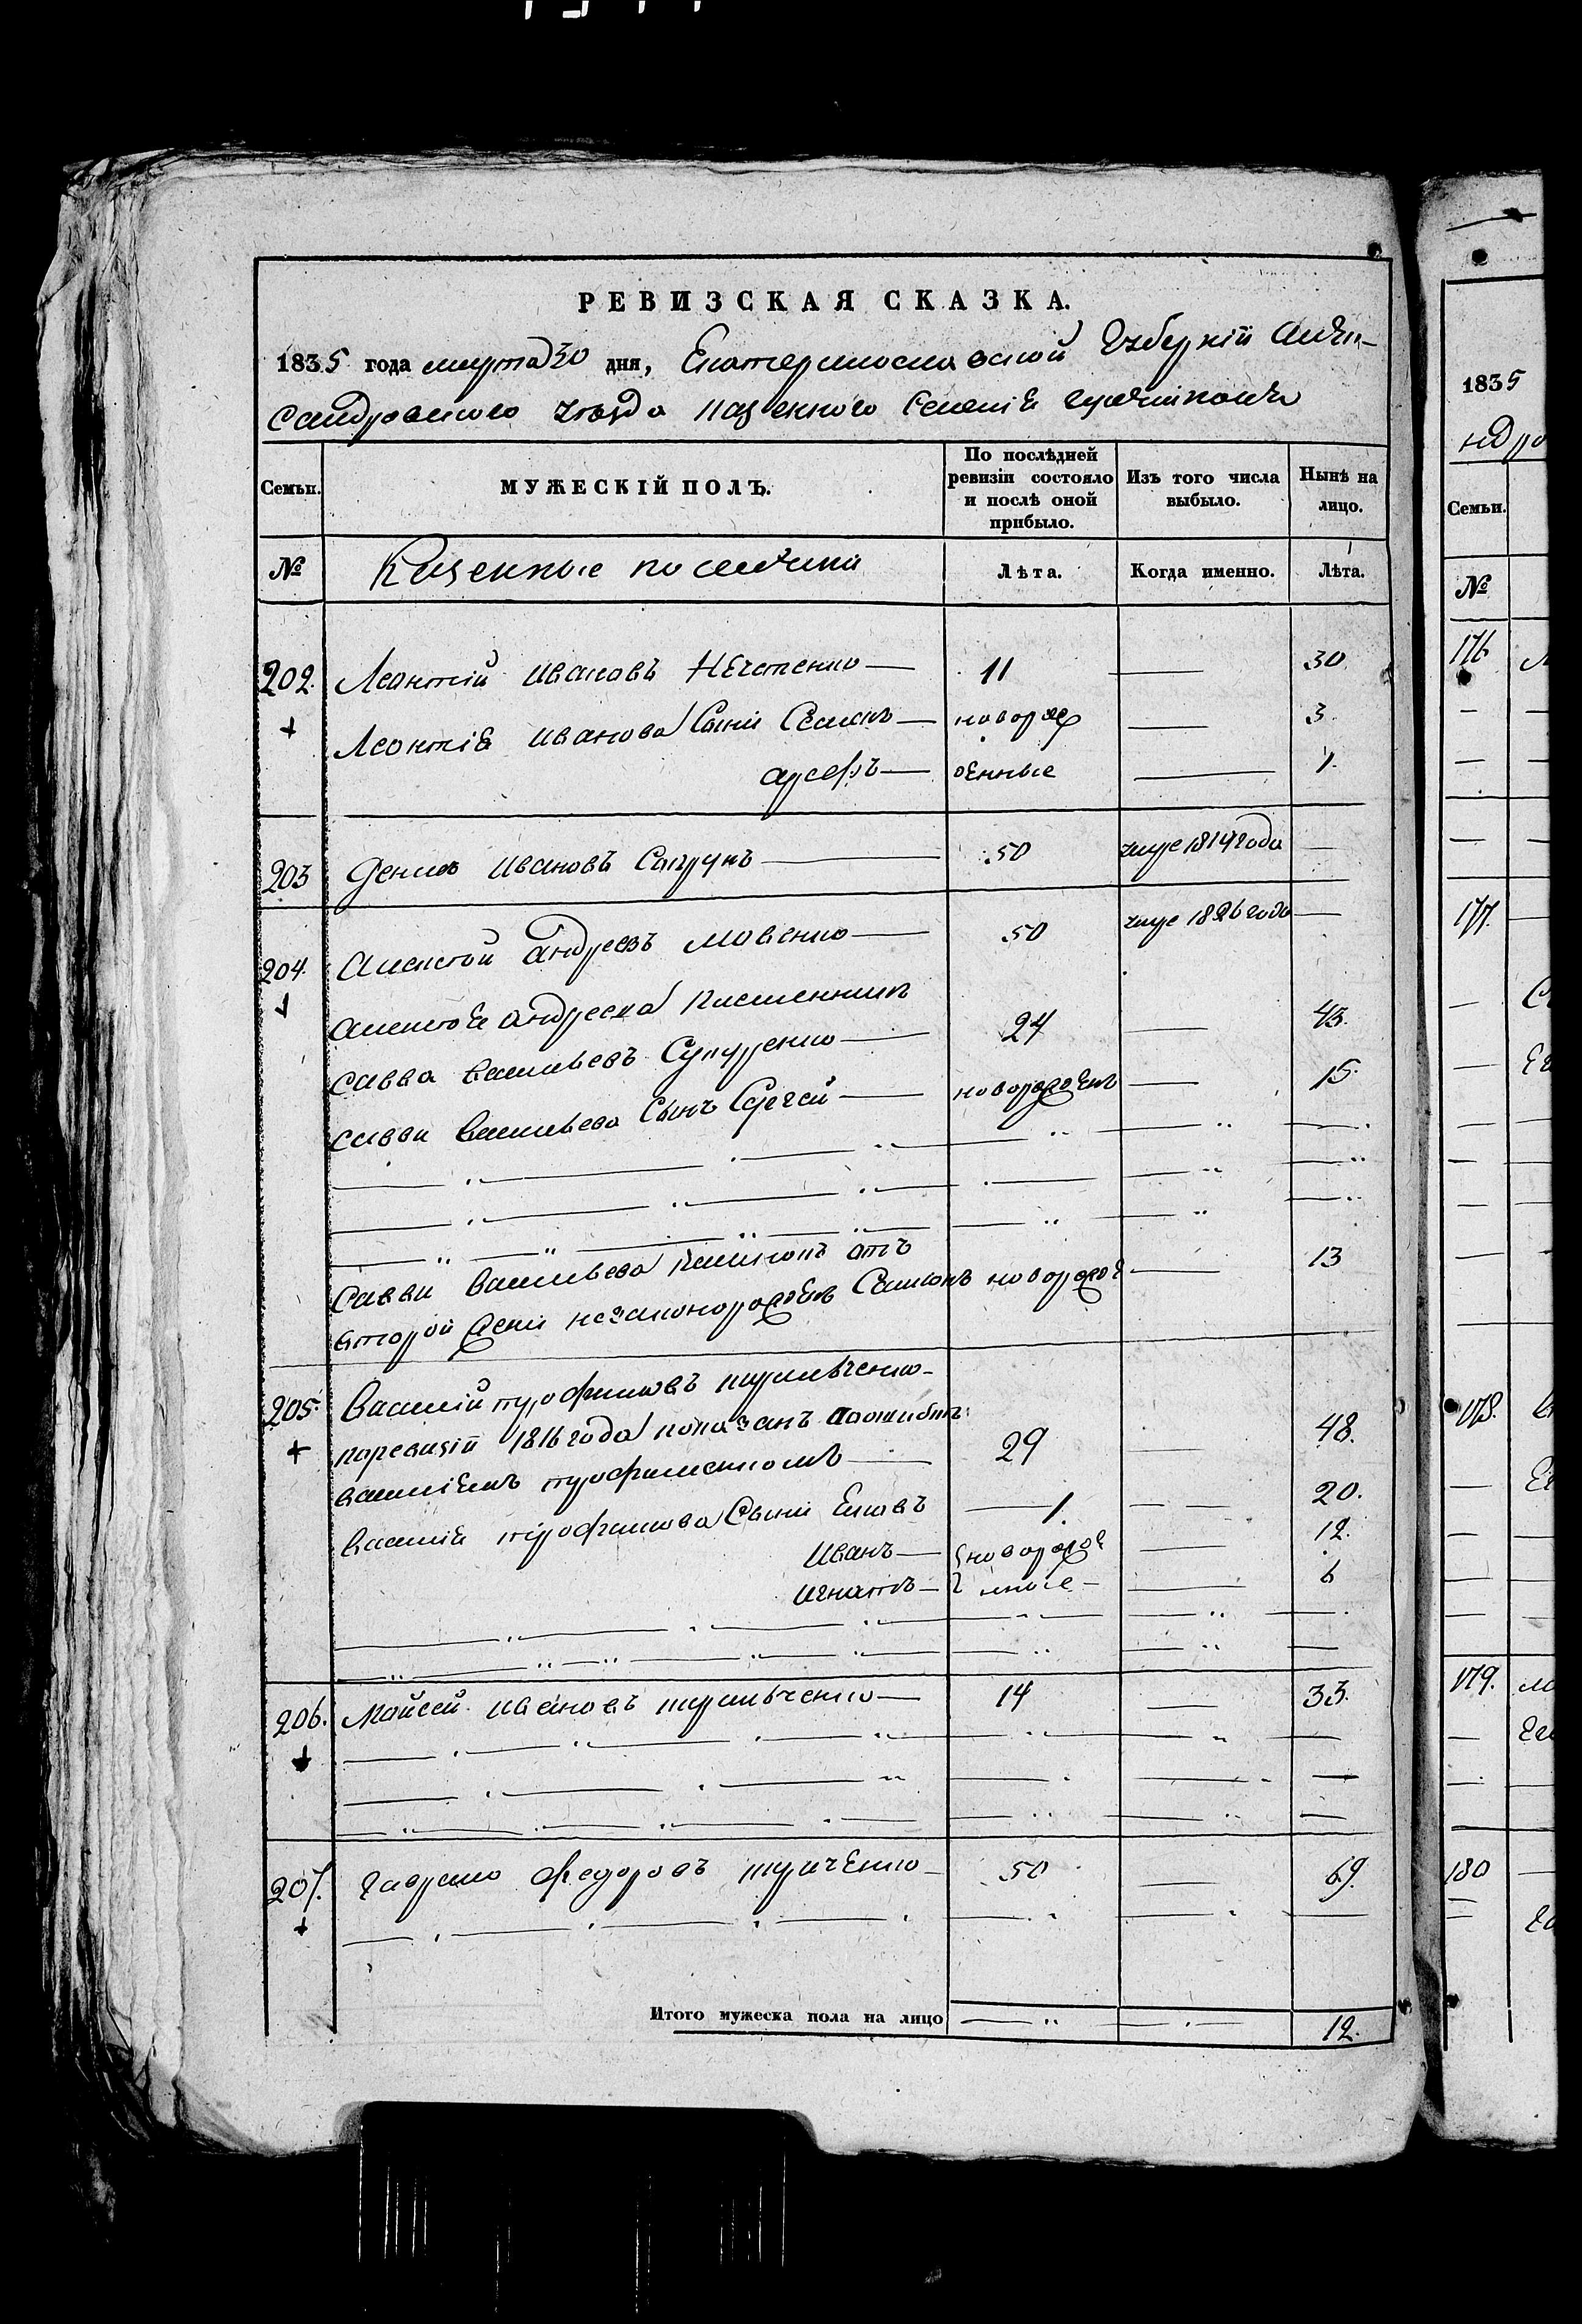 РЕВИЗСКАЯ СКАЗКА.
1835 года марта 30 дня, Екатеринославской Губерніи Алек-
сандровского уезда казенного Селенія
Семьи. МУЖЕСКІЙ ПОЛЪ. По послѣдней ревизіи состояло и послѣ оной прибыло. Изъ того числа выбыло. Нынѣ на лицо.
№ Казенные поселяни Лѣта. Когда именно. Лѣта.
202. Леонтій Ивановъ — 11 — 30
Леонтія Иванова Сыни Семенъ — новорож — 3
— денные — 1.
203 Денисъ Ивановъ Сапрунъ — 50 умре 1814 года —
204. Алексей Андреевъ Мовенко — 50 умре 1826 года —
Алексея Андреева племенникъ
Савва Васильевъ — 24 — 43.
Савви Васильева Сынъ Сергей — новорожденъ — 15
Савви Васильева отъ
второй жени незаконорожденъ Семионъ новорожде — 13
205. Василій Трофимовъ
по ревизіи 1816 года показанъ поошибке
Василіемъ Трофименкомъ — 29 — 48.
Василія Трофимова Сыни Яковъ — 1. — 20.
Иванъ — новорожде — 12.
Игнатъ — нные — 6
206. Мойсей Ивановъ — 14 — 33.
207. Гаврило Федоровъ — 50 — 69.
Итого мужеска пола на лицо 12.
1835
ндро
Семьи.
№
176
177.
178.
179.
180